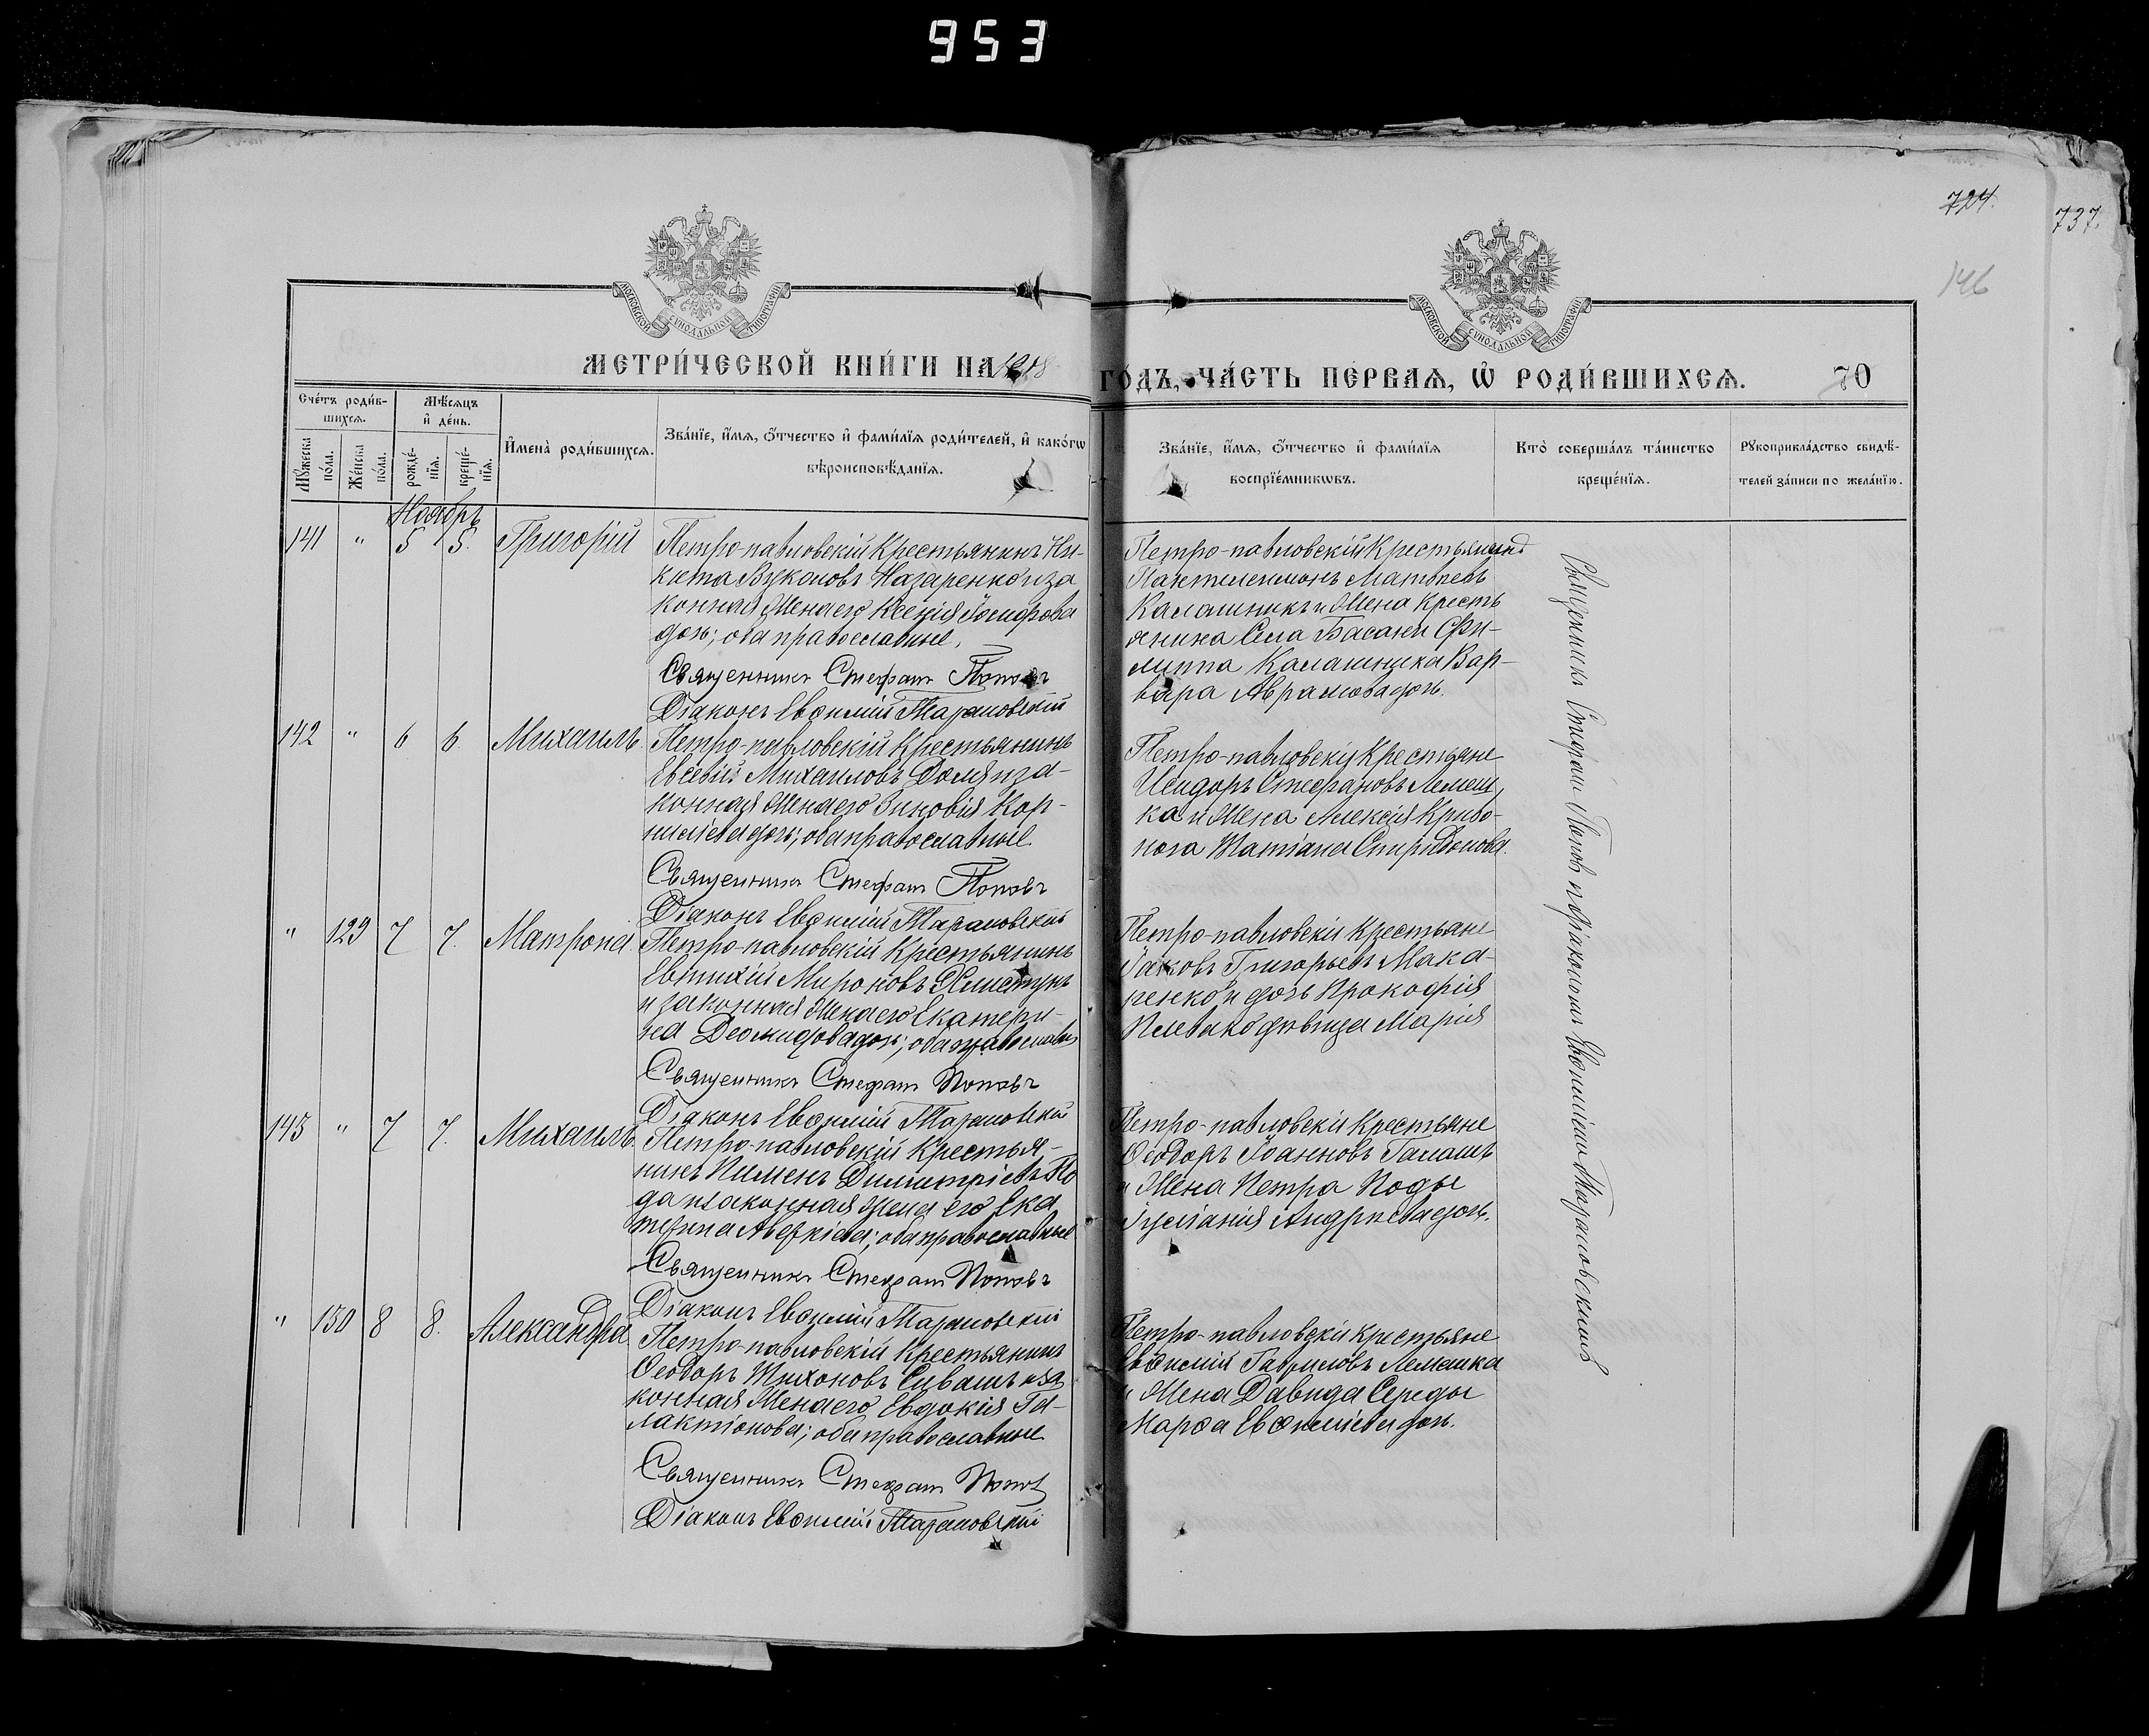 953
724.
737.
146
МОСКОВСКОЙ СѴНОДАЛЬНОЙ ТИПОГРАФІИ
МОСКОВСКОЙ СѴНОДАЛЬНОЙ ТИПОГРАФІИ
МЕТРИ́ЧЕСКОЙ КНИ́ГИ НА
ГО́ДЪ, ЧА́СТЬ ПЕ́РВАѦ, Ѡ҆ РОДИ́ВШИХСѦ.
70
Сче́тъ роди́в-
шихсѧ.
Мѣ́сѧцъ
и҆ де́нь.
Мꙋ́жеска
по́ла.
Же́нска
по́ла.
рожде́-
нїѧ.
креще́-
нїѧ.
И҆мена̀ роди́вшихсѧ.
Зва́нїе, и҆́мѧ, ѻ҆́тчество и҆ фами́лїѧ роди́телей, и҆ како́гѡ
вѣроисповѣ́данїѧ.
Зва́нїе, и҆́мѧ, ѻ҆́тчество и҆ фами́лїѧ
воспрїе́мникѡвъ.
Кто̀ соверша́лъ та́инство
креще́нїѧ.
Рꙋкоприкла́дство свидѣ́-
телей за́писи по жела́нїю.
Ноябрь
141 " 5 5. Григорій
Петро-павловскій Крестьянинъ Ни-
кита Вуколовъ Назаренко и за
конная Жена его Ксенія Іосифова
дочь; оба православные.
Священникъ Стефанъ Поповъ
Діаконъ Евѳимій Тарановскій
Петро-павловскій Крестьянинъ
Пантелеимонъ Матвѣевъ
Калашникъ и Жена кресть
янина Села Басани Фи-
липпа Калашника Вар-
вара Аврамова дочь.
142 " 6 6. Михаилъ.
Петро-павловскій Крестьянинъ
Евсевій Михаиловъ Доля и за-
конная Жена его Зиновія Кор-
ниліева дочь; оба православные.
Священникъ Стефанъ Поповъ
Діаконъ Евѳимій Тарановскій
Петро-павловскіи Крестьяне
Исидоръ Стефановъ Лемеш
ка и Жена Алексія Криво-
носа Татіана Спиридонова.
" 129 7 7. Матрона.
Петро-павловскій Крестьянинъ
Евтихій Мироновъ
и законная Жена его Екатери-
на дочь; оба православн
Священникъ Стефанъ Поповъ
Діаконъ Евѳимій Тарановскій
Петро-павловскіи Крестьяне
Іаковъ Григорьевъ Мака-
ренко и дочь Прокофія
дѣвица Марія
143 " 7 7. Михаилъ.
Петро-павловскій Крестья-
нинъ Пименъ Димитріевъ По
да и законная Жена его Ека
терина Аверкіева; оба православные
Священникъ Стефанъ Поповъ
Діаконъ Евѳимій Тарановскій
Петро-павловскіи Крестьяне
Ѳеодоръ Іоанновъ Галашъ
и Жена Петра Поды
Іуліанія Андреева дочь.
" 130 8 8. Александра.
Петро-павловскій Крестьянинъ
Ѳеодоръ Тихоновъ Сивашъ и за
конная Жена его Евдокія Га-
лактіонова; оба православные.
Священникъ Стефанъ Поповъ
Діаконъ Евѳимій Тарановскій
Петро-павловскіи крестьяне
Евѳимій Гавриловъ Лемешка
и Жена Давида Середы
Марѳа Евѳиміева дочь.
Священникъ Стефанъ Поповъ съ діакономъ Евѳиміемъ Тарановскимъ